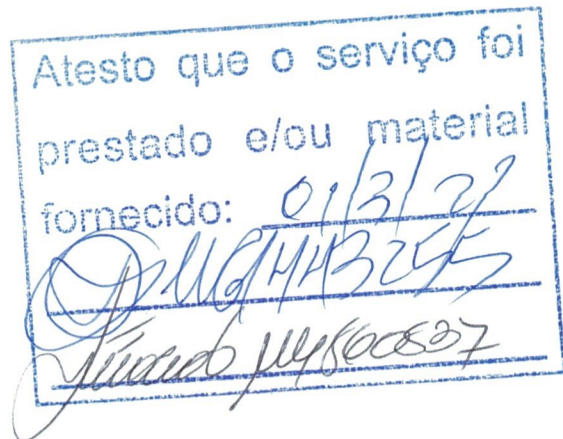 Atesto que o serviço foi
prestado e/ou material
fornecido: 01/3/21
MG1443255